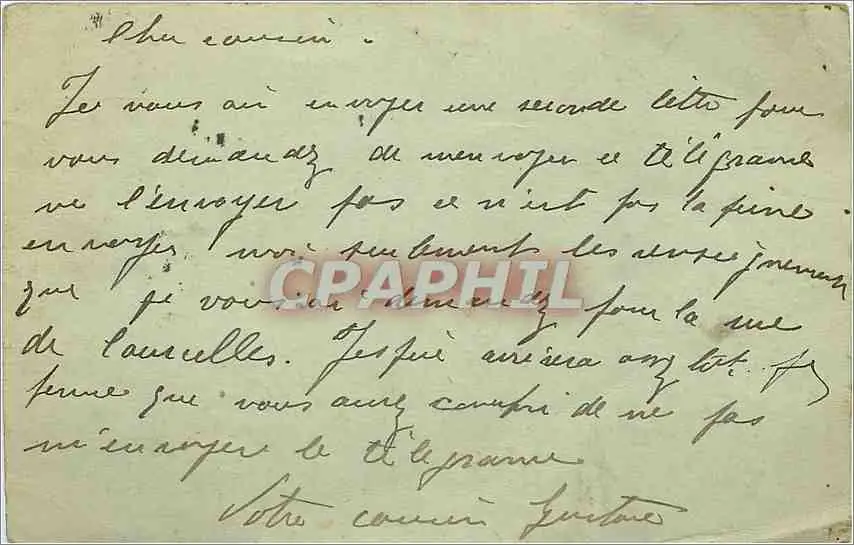 Cher cousin.
Je vous ai envoyer une seconde lettre pour
vous demandez de m'envoyer ce télégrame
ne l'envoyer pas ce n'est pas la peine.
envoyer moi seulement les renseignements
que je vous ai demandez pour la rue
de Courcelles. J'espère arrivera assez tôt.
que vous aurez compri de ne pas
m'envoyer le télégrame
Votre cousin Gustave
CPAPHIL